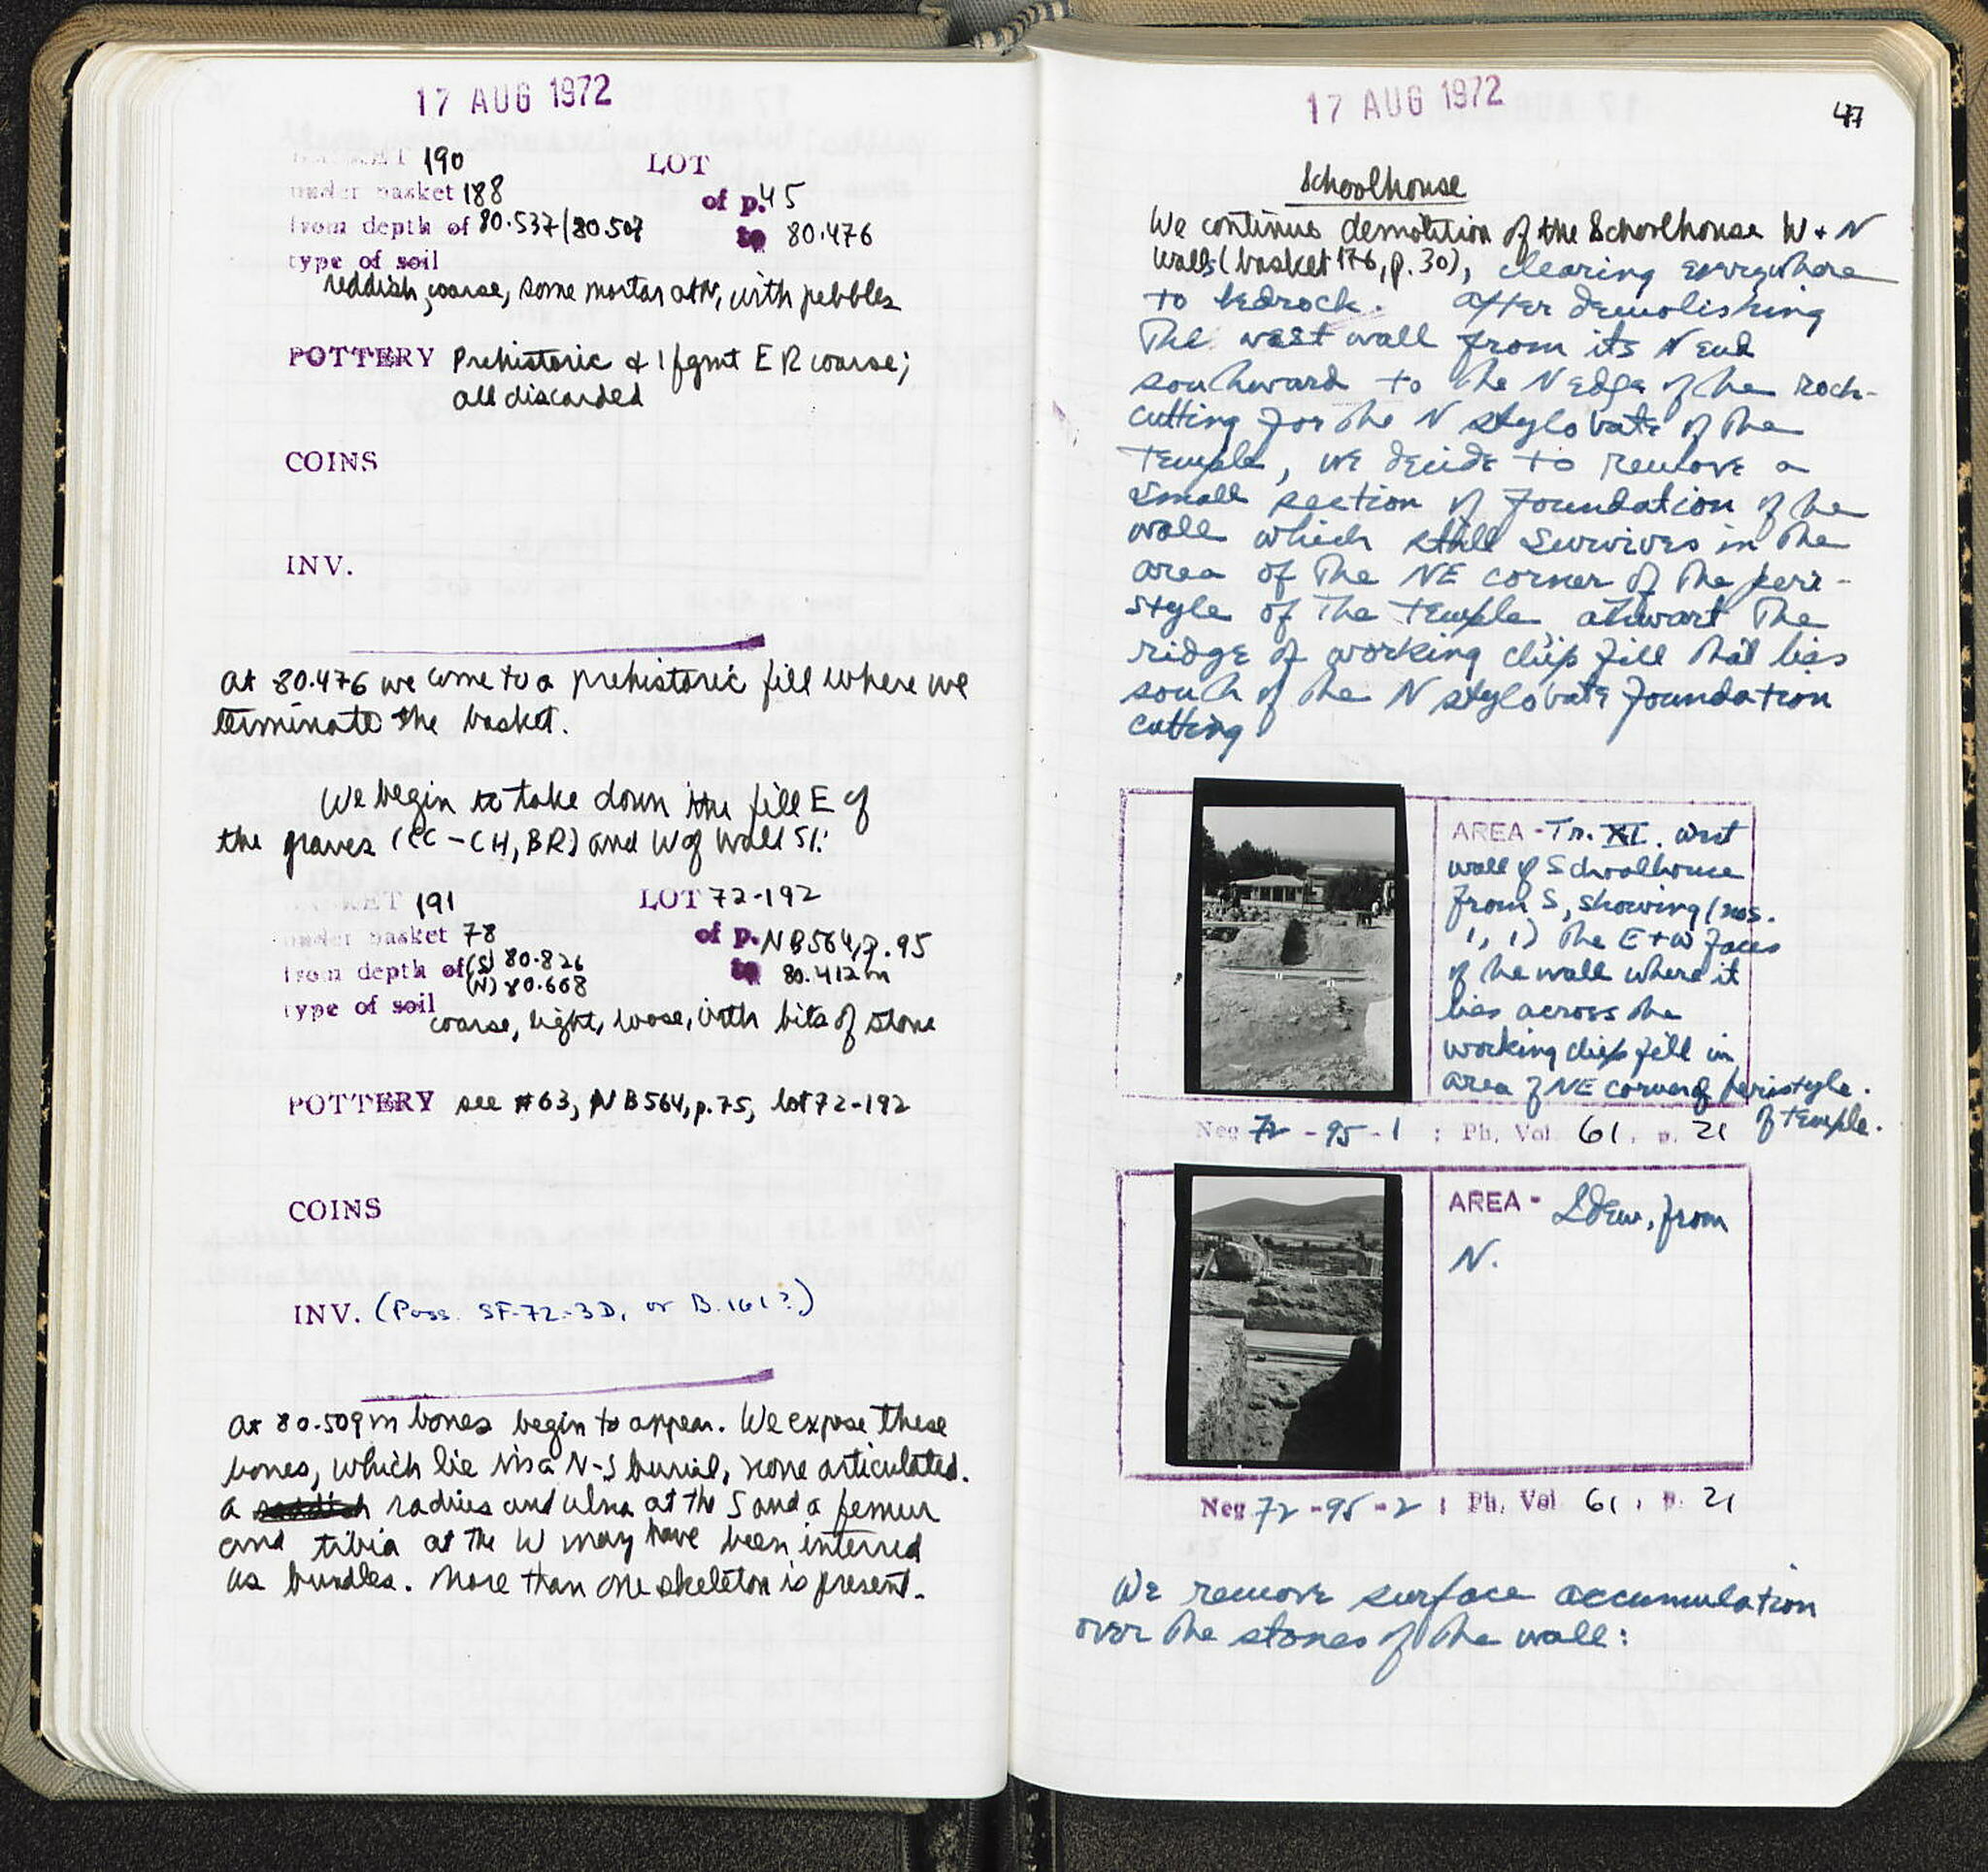 17 AUG 1972
BASKET 190 LOT
under basket 188 of p. 45
from depth of 80.537/80.507 to 80.476
type of soil
reddish, coarse, some mortar at N, with pebbles
POTTERY Prehistoric & 1 fgmt ER coarse;
all discarded
COINS
INV.
At 80.476 we come to a prehistoric fill where we
terminate the basket.
We begin to take down the fill E of
the graves (CC-CH, BR) and W of Wall 51:
BASKET 191 LOT 72-192
under basket 78 of p. NB564, p. 95
from depth of (S) 80.826 to 80.412m
(N) 80.608
type of soil
coarse, light, loose, with bits of stone
POTTERY see #63, NB564, p.75, lot 72-192
COINS
INV. (Poss. SF-72-3D, or B.161?)
At 80.509m bones begin to appear. We expose these
bones, which lie in a N-S burial, none articulated.
A radius and ulna at the S and a femur
and tibia at the W may have been interred
as bundles. More than one skeleton is present.
17 AUG 1972
47
Schoolhouse
We continue demolition of the Schoolhouse W + N
walls (basket 176, p. 30), clearing everywhere
to bedrock. After demolishing
The west wall from its N end
southward to the N edge of the rock-
cutting for the N stylobate of the
Temple, we decide to remove a
small section of foundation of the
wall which still survives in the
area of the NE corner of the peri-
style of the Temple athwart the
ridge of working chip fill that lies
south of the N stylobate foundation
cutting
AREA - Tr. XI. West
wall of Schoolhouse
from S, showing (nos.
1, 1) the E+W faces
of the wall where it
lies across the
working chip fill in
area of NE corner of peristyle.
of Temple.
Neg 72-95-1 ; Ph. Vol 61, p. 21
AREA - Idem, from
N.
Neg 72-95-2 ; Ph. Vol 61, p. 21
We remove surface accumulation
over the stones of the wall: